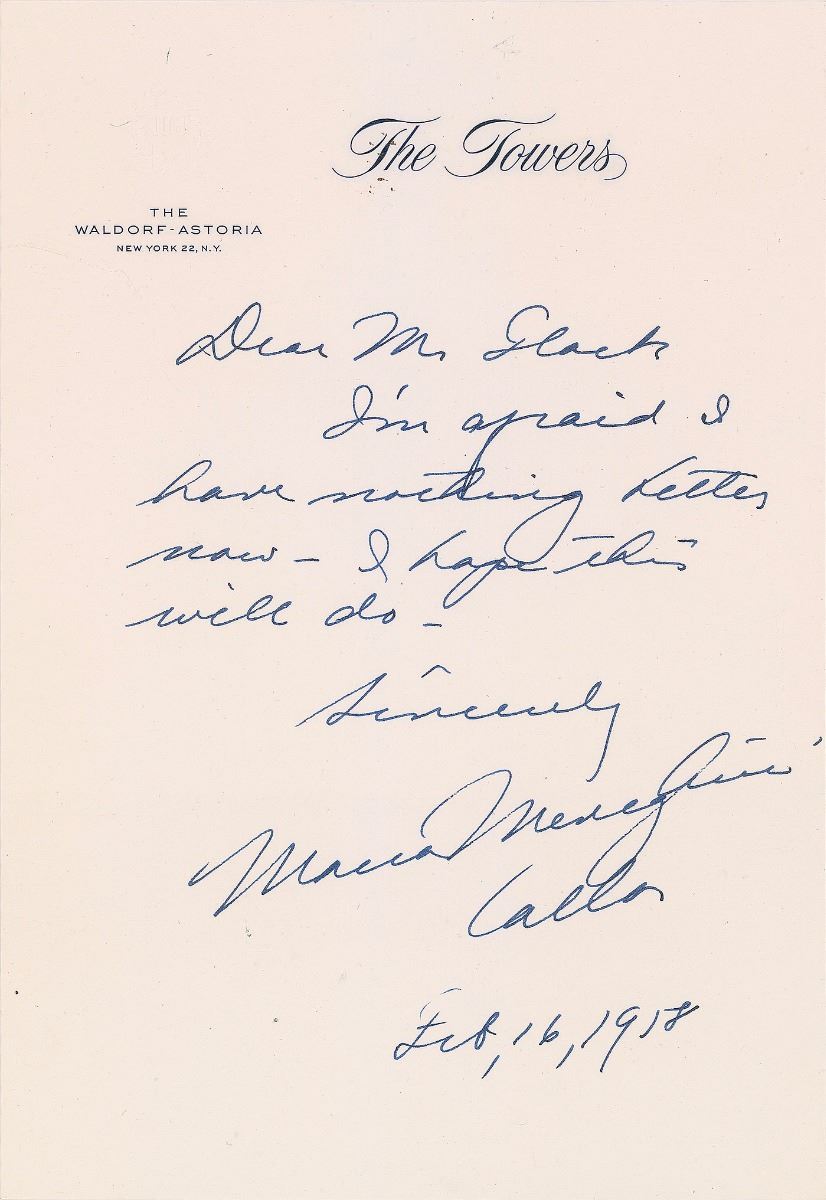 The Towers
THE
WALDORF-ASTORIA
NEW YORK 22, N.Y.
Dear Mr
I'm afraid I
have nothing better
now - I hope this
will do -
Sincerely
Maria Meneghini
Callas
Feb, 16, 1958